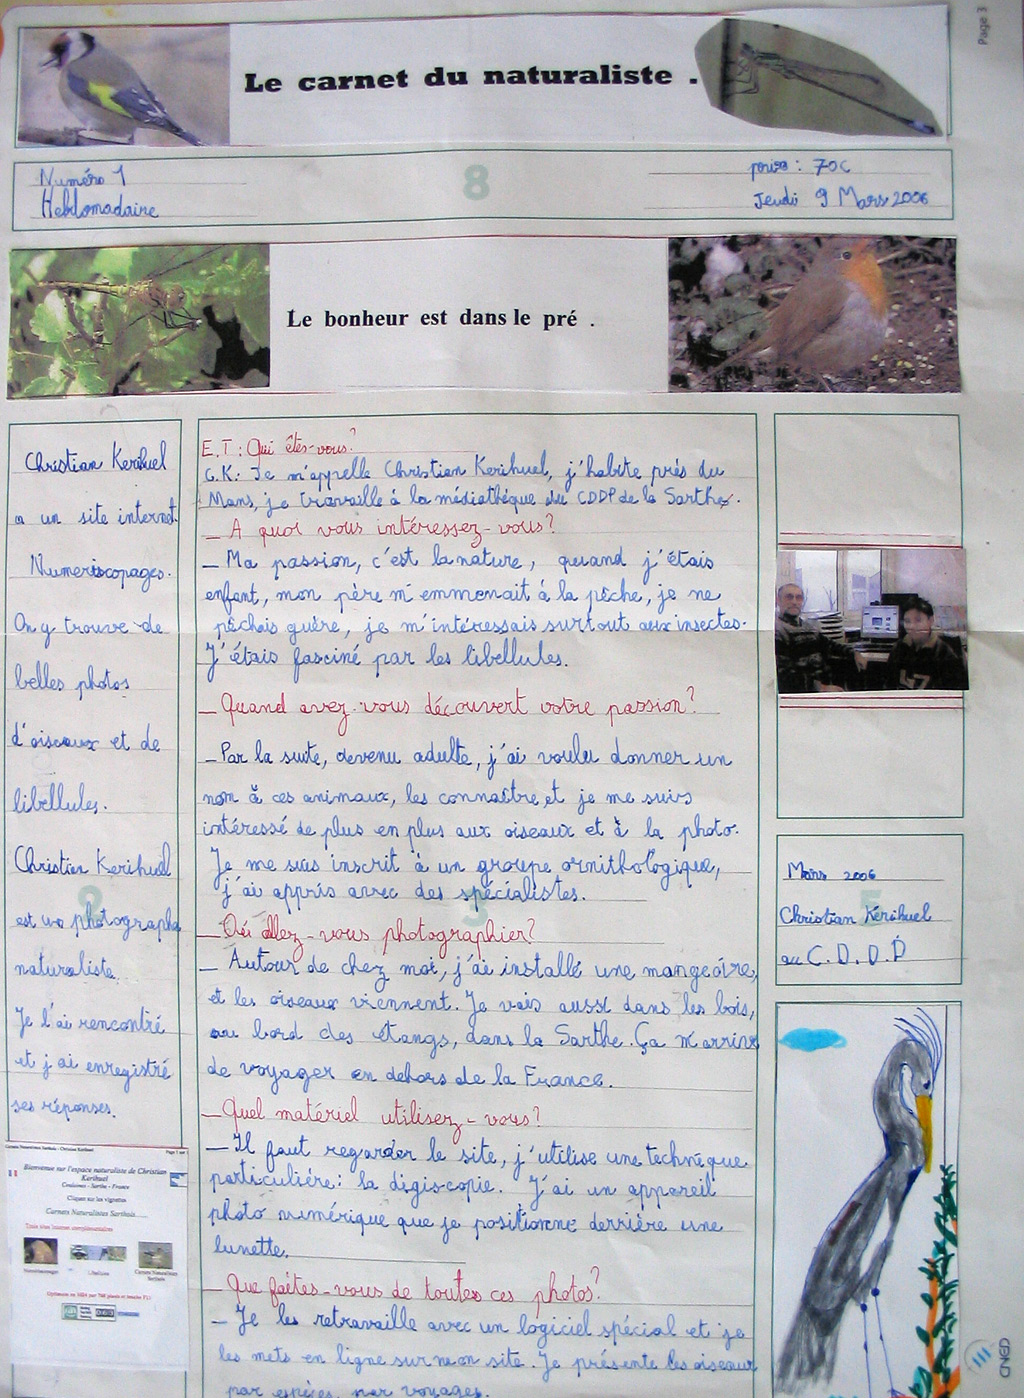 Page 3
Le carnet du naturaliste .
Numéro 1
Hebdomadaire
8
prix : 70c
Jeudi 9 Mars 2006
Le bonheur est dans le pré .
Christian Kerihuel
a un site internet.
Numeriscopages.
On y trouve de
belles photos
d'oiseaux et de
libellules.
Christian Kerihuel
est un photographe
naturaliste.
Je l'ai rencontré
et j'ai enregistré
ses réponses.
2
Carnets Naturalistes Sarthois - Christian Kerihuel
Page 1 sur 1
Bienvenue sur l'espace naturaliste de Christian
Kerihuel
Coulaines - Sarthe - France
Cliquez sur les vignettes
Carnets Naturalistes Sarthois
E.T: Qui êtes-vous?
C.K: Je m'appelle Christian Kerihuel, j'habite près du
Mans, je travaille à la médiathèque du CDDP de la Sarthe.
_ A quoi vous intéressez-vous?
_ Ma passion, c'est la nature, quand j'étais
enfant, mon père m'emmenait à la pêche, je ne
pêchais guère, je m'intéressais surtout aux insectes.
J'étais fasciné par les libellules.
_ Quand avez-vous découvert votre passion?
_ Par la suite, devenu adulte, j'ai voulu donner un
nom à ces animaux, les connaître et je me suis
intéressé de plus en plus aux oiseaux et à la photo.
Je me suis inscrit à un groupe ornithologique,
j'ai appris avec des spécialistes.
3
_ Où allez-vous photographier?
_ Autour de chez moi, j'ai installé une mangeoire,
et les oiseaux viennent. Je vais aussi dans les bois,
au bord des étangs, dans la Sarthe. Ça m'arrive
de voyager en dehors de la France.
_ Quel matériel utilisez-vous?
_ Il faut regarder le site, j'utilise une technique
particulière: la digiscopie. J'ai un appareil
photo numérique que je positionne derrière une
lunette.
_ Que faites-vous de toutes ces photos?
_ Je les retravaille avec un logiciel spécial et je
les mets en ligne sur mon site. Je présente les oiseaux
par espèces, par voyages.
47
Mars 2006
Christian Kérihuel
au C.D.D.P
5
III
CNED